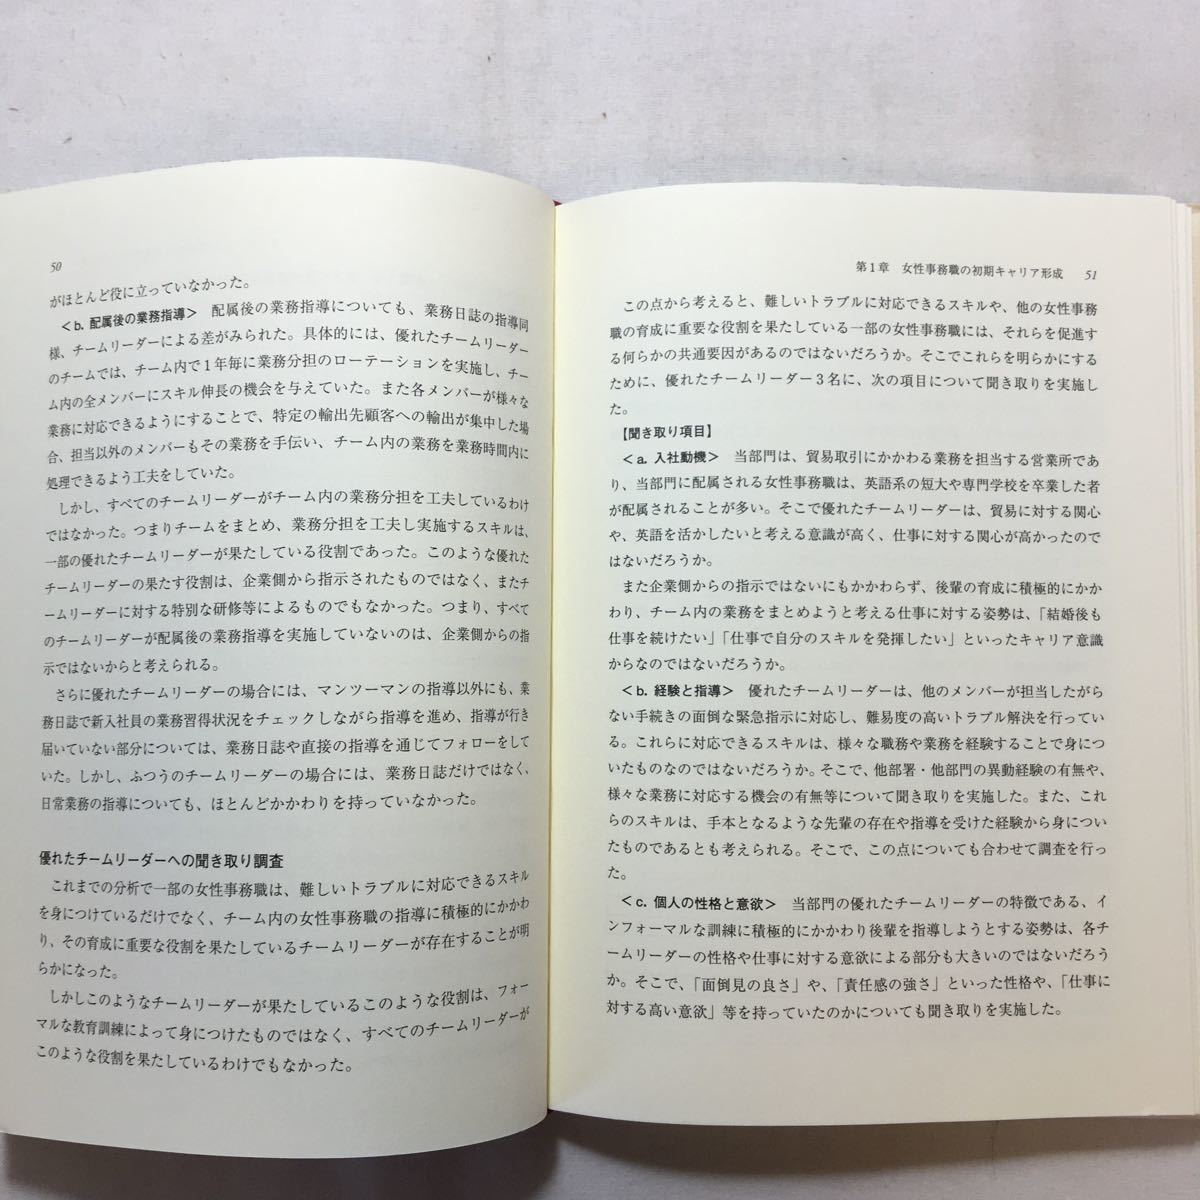 50
がほとんど役に立っていなかった。
＜b. 配属後の業務指導＞　配属後の業務指導についても、業務日誌の指導同
様、チームリーダーによる差がみられた。具体的には、優れたチームリーダー
のチームでは、チーム内で1年毎に業務分担のローテーションを実施し、チー
ム内の全メンバーにスキル伸長の機会を与えていた。また各メンバーが様々な
業務に対応できるようにすることで、特定の輸出先顧客への輸出が集中した場
合、担当以外のメンバーもその業務を手伝い、チーム内の業務を業務時間内に
処理できるよう工夫をしていた。
しかし、すべてのチームリーダーがチーム内の業務分担を工夫しているわけ
ではなかった。つまりチームをまとめ、業務分担を工夫し実施するスキルは、
一部の優れたチームリーダーが果たしている役割であった。このような優れた
チームリーダーの果たす役割は、企業側から指示されたものではなく、またチ
ームリーダーに対する特別な研修等によるものでもなかった。つまり、すべて
のチームリーダーが配属後の業務指導を実施していないのは、企業側からの指
示ではないからと考えられる。
さらに優れたチームリーダーの場合には、マンツーマンの指導以外にも、業
務日誌で新入社員の業務習得状況をチェックしながら指導を進め、指導が行き
届いていない部分については、業務日誌や直接の指導を通じてフォローをして
いた。しかし、ふつうのチームリーダーの場合には、業務日誌だけではなく、
日常業務の指導についても、ほとんどかかわりを持っていなかった。
優れたチームリーダーへの聞き取り調査
これまでの分析で一部の女性事務職は、難しいトラブルに対応できるスキル
を身につけているだけでなく、チーム内の女性事務職の指導に積極的にかかわ
り、その育成に重要な役割を果たしているチームリーダーが存在することが明
らかになった。
しかしこのようなチームリーダーが果たしているこのような役割は、フォー
マルな教育訓練によって身につけたものではなく、すべてのチームリーダーが
このような役割を果たしているわけでもなかった。
第1章　女性事務職の初期キャリア形成　51
この点から考えると、難しいトラブルに対応できるスキルや、他の女性事務
職の育成に重要な役割を果たしている一部の女性事務職には、それらを促進す
る何らかの共通要因があるのではないだろうか。そこでこれらを明らかにする
ために、優れたチームリーダー3名に、次の項目について聞き取りを実施し
た。
【聞き取り項目】
＜a. 入社動機＞　当部門は、貿易取引にかかわる業務を担当する営業所であ
り、当部門に配属される女性事務職は、英語系の短大や専門学校を卒業した者
が配属されることが多い。そこで優れたチームリーダーは、貿易に対する関心
や、英語を活かしたいと考える意識が高く、仕事に対する関心が高かったので
はないだろうか。
また企業側からの指示ではないにもかかわらず、後輩の育成に積極的にかか
わり、チーム内の業務をまとめようと考える仕事に対する姿勢は、「結婚後も
仕事を続けたい」「仕事で自分のスキルを発揮したい」といったキャリア意識
からなのではないだろうか。
＜b. 経験と指導＞　優れたチームリーダーは、他のメンバーが担当したがら
ない手続きの面倒な緊急指示に対応し、難易度の高いトラブル解決を行ってい
る。これらに対応できるスキルは、様々な職務や業務を経験することで身につ
いたものなのではないだろうか。そこで、他部署・他部門の異動経験の有無や、
様々な業務に対応する機会の有無等について聞き取りを実施した。また、これ
らのスキルは、手本となるような先輩の存在や指導を受けた経験から身につい
たものであるとも考えられる。そこで、この点についても合わせて調査を行っ
た。
＜c. 個人の性格と意欲＞　当部門の優れたチームリーダーの特徴である、イ
ンフォーマルな訓練に積極的にかかわり後輩を指導しようとする姿勢は、各チ
ームリーダーの性格や仕事に対する意欲による部分も大きいのではないだろう
か。そこで、「面倒見の良さ」や、「責任感の強さ」といった性格や、「仕事に
対する高い意欲」等を持っていたのかについても聞き取りを実施した。